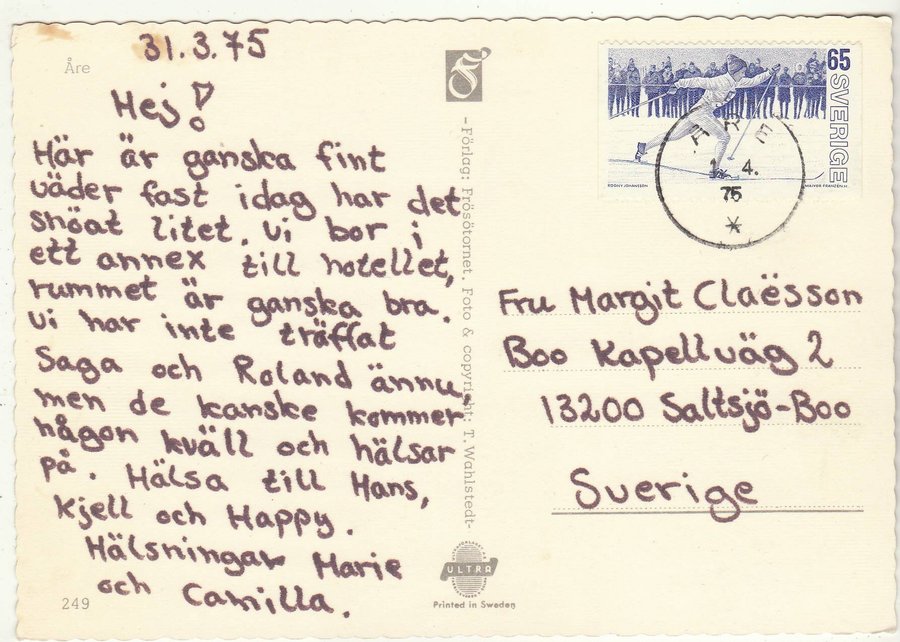 31.3.75
Åre
Hej!
Här är ganska fint
väder fast idag har det
snöat litet. Vi bor i
ett annex till hotellet,
rummet är ganska bra.
Vi har inte träffat
Saga och Roland ännu,
men de kanske kommer
någon kväll och hälsar
på. Hälsa till Hans,
Kjell och Happy.
Hälsningar Marie
och Camilla.
249
-Förlag: Frösötornet. Foto & copyright: T. Wahlstedt-
ULTRA
Printed in Sweden
65
SVERIGE
ROGNY JOHANSSON
MAJVOR FRANZÉN.H.
ÅRE
1. 4.
75
Fru Margit Claësson
Boo Kapellväg 2
13200 Saltsjö-Boo
Sverige